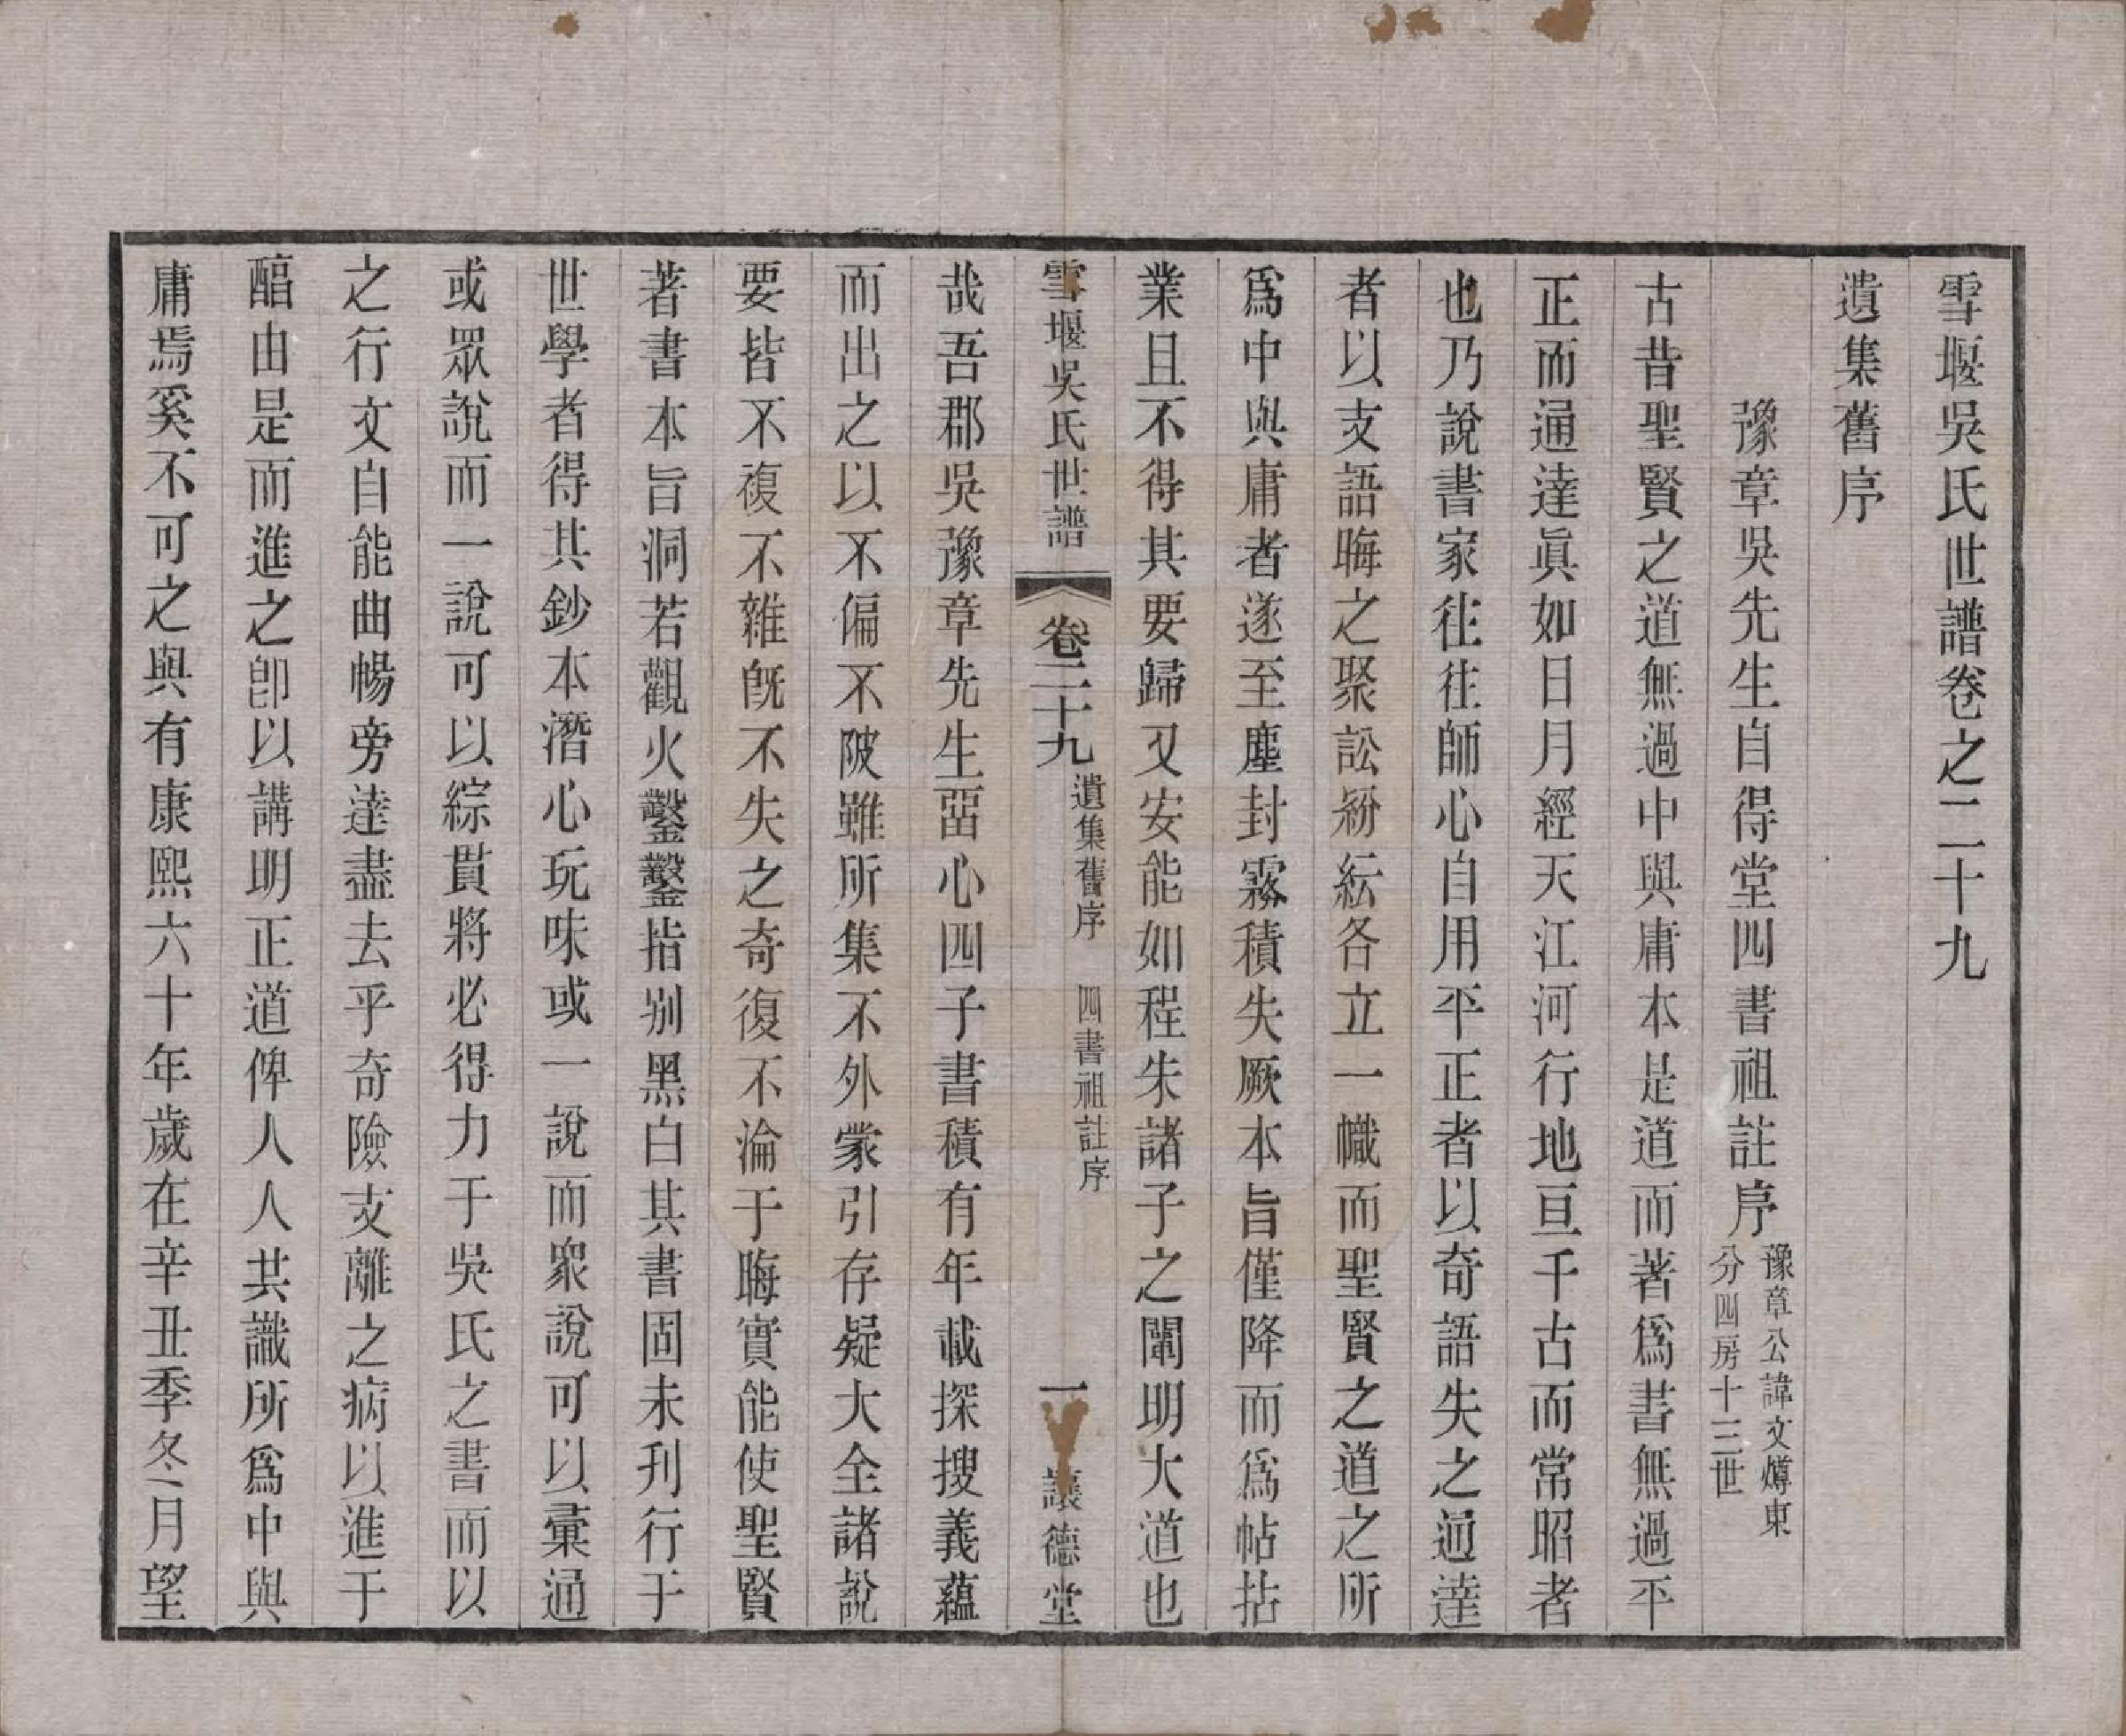 雪堰吳氏世譜卷之二十九
遺集舊序
豫章吳先生自得堂四書祖註序
豫章公諱文㷞東
分四房十三世
古昔聖賢之道無過中與庸本是道而著爲書無過平
正而通達眞如日月經天江河行地亘千古而常昭者
也乃說書家往往師心自用平正者以奇語失之通達
者以支語晦之聚訟紛紜各立一幟而聖賢之道之所
爲中與庸者遂至塵封霧積失厥本旨僅降而爲帖括
業且不得其要歸又安能如程朱諸子之闡明大道也
雪堰吳氏世譜
卷二十九
遺集舊序 四書祖註序
一
讓德堂
哉吾郡吳豫章先生留心四子書積有年載探搜義蘊
而出之以不偏不陂雖所集不外蒙引存疑大全諸說
要皆不複不雜旣不失之奇復不淪于晦實能使聖賢
著書本旨洞若觀火鑿鑿指别黑白其書固未刋行于
世學者得其鈔本潛心玩味或一說而衆說可以彙通
或眾說而一說可以綜貫將必得力于吳氏之書而以
之行文自能曲暢旁達盡去乎奇險支離之病以進于
醇由是而進之卽以講明正道俾人人共識所爲中與
庸焉奚不可之與有康熙六十年歲在辛丑季冬月望